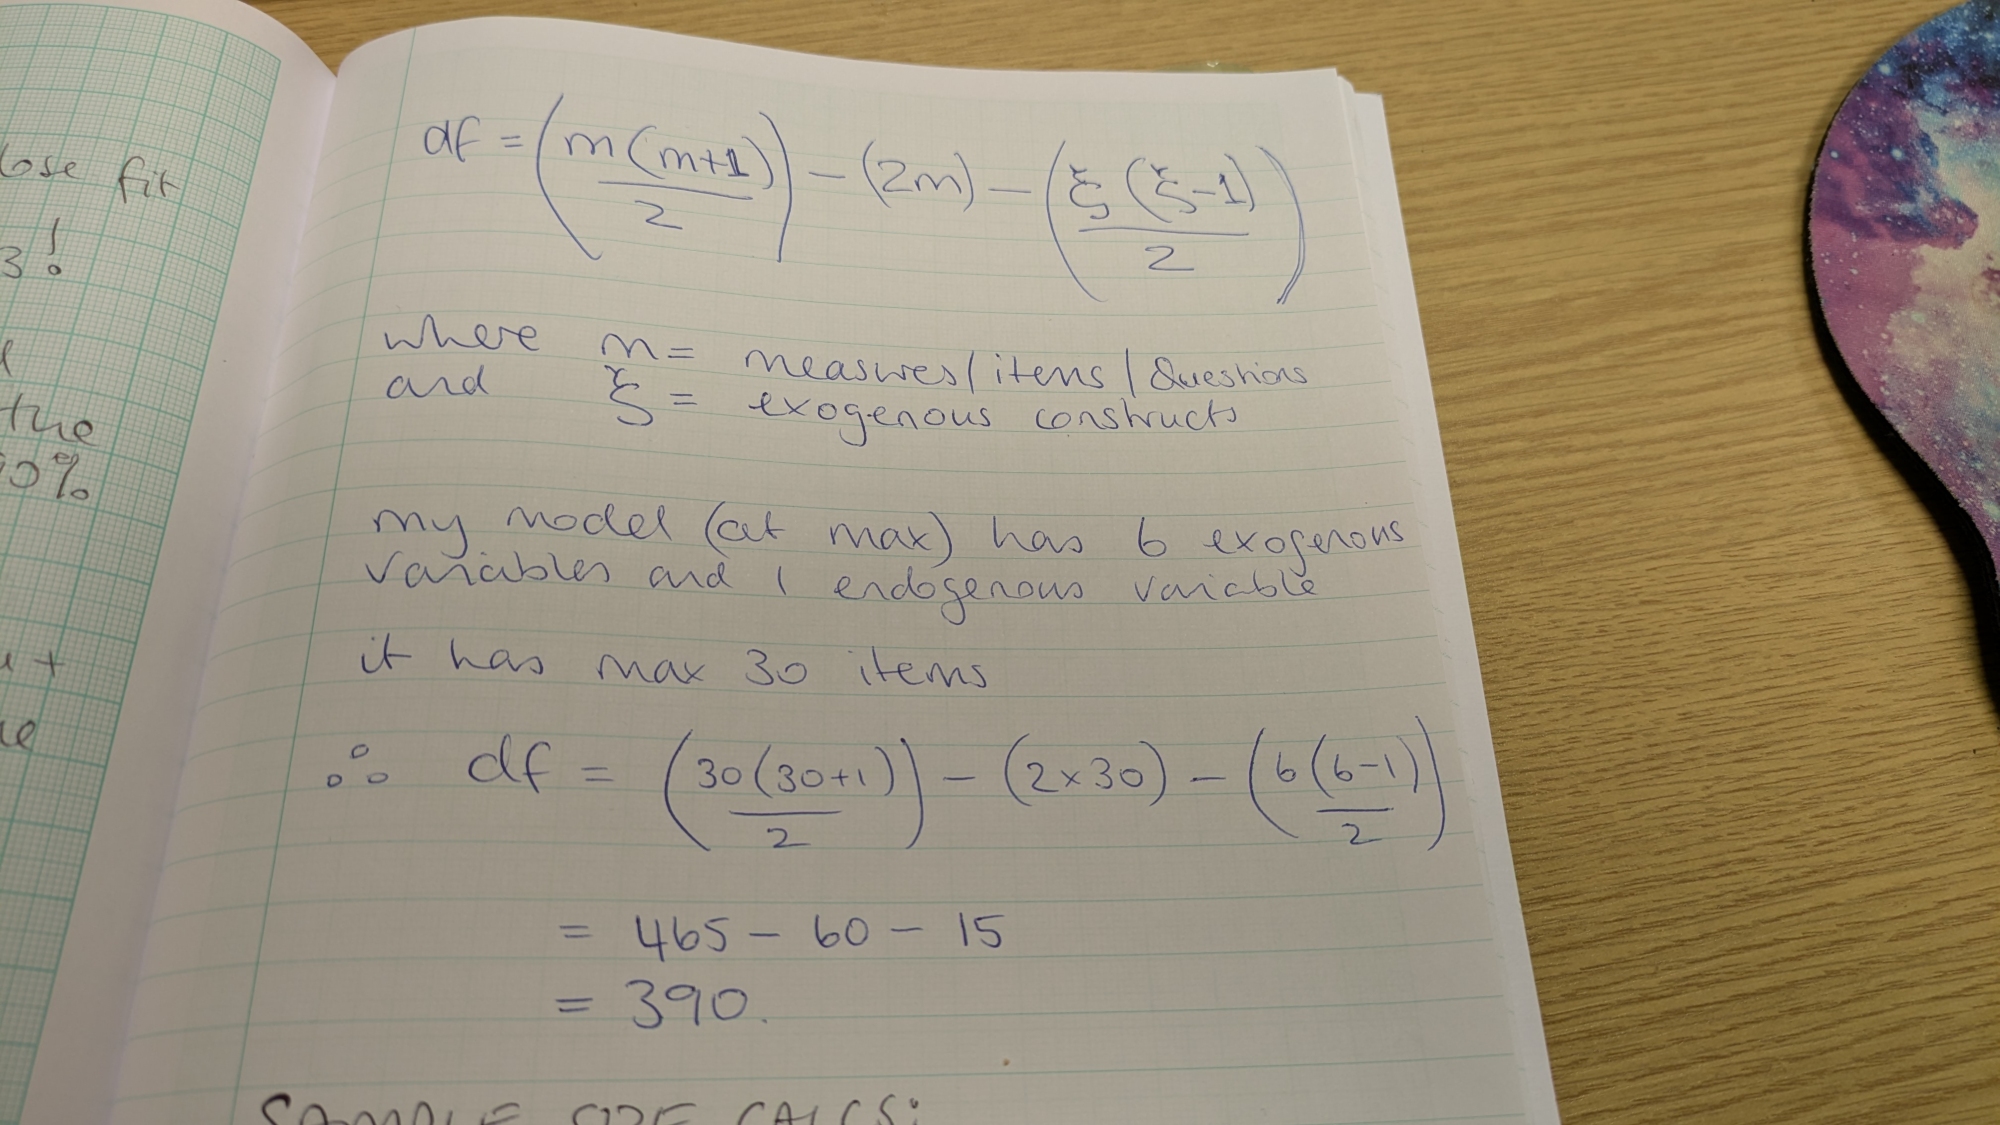 lose fit
3!
the
90%
df = (m(m+1)/2) - (2m) - (ξ(ξ-1)/2)
where m = measures/items/Questions
and ξ = exogenous constructs
my model (at max) has 6 exogenous
variables and 1 endogenous variable
it has max 30 items
∴ df = (30(30+1)/2) - (2×30) - (6(6-1)/2)
= 465 - 60 - 15
= 390.
SAMPLE SIZE CALCS: